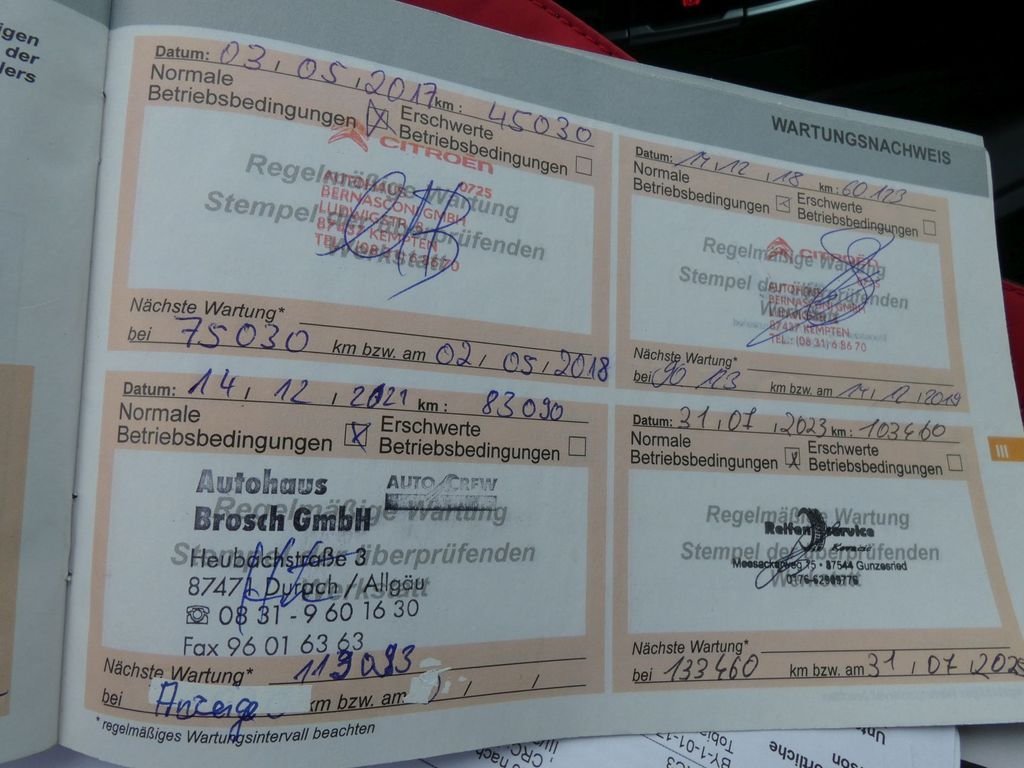 igen
der
lers
WARTUNGSNACHWEIS
Datum: 03.05.2017 km: 45030
Normale
Betriebsbedingungen
Erschwerte
Betriebsbedingungen
CITROËN
Regelmäßige Wartung
Stempel der überprüfenden
Werkstatt
AUTOHAUS 0725
BERNASCONI GMBH
LUDWIGSTR.
87437 KEMPTEN
TEL.: (0831) 6 86 70
Nächste Wartung*
bei 75030 km bzw. am 02.05.2018
Datum: 14.12.18 km: 60123
Normale
Betriebsbedingungen
Erschwerte
Betriebsbedingungen
CITROËN
Regelmäßige Wartung
Stempel der überprüfenden
Werkstatt
AUTOHAUS
BERNASCONI GMBH
LUDWIGSTR.
87437 KEMPTEN
TEL.: (08 31) 6 86 70
Nächste Wartung*
bei 90123 km bzw. am 14.12.2019
Datum: 14.12.2021 km: 83090
Normale
Betriebsbedingungen
Erschwerte
Betriebsbedingungen
Autohaus AUTO CREW
Brosch GmbH
Regelmäßige Wartung
Stempel der überprüfenden
Werkstatt
Heubachstraße 3
87471 Durach / Allgäu
☎ 08 31 - 9 60 16 30
Fax 96 01 63 63
Nächste Wartung* 113093
bei Anzeige km bzw. am: / /
*regelmäßiges Wartungsintervall beachten
Datum: 31.07.2023 km: 103460
Normale
Betriebsbedingungen
Erschwerte
Betriebsbedingungen
Regelmäßige Wartung
Reifenservice
Stempel der überprüfenden
Werkstatt
75 • 87544 Gunzesried
0176-62909776
Nächste Wartung*
bei 133460 km bzw. am 31.07.202
III